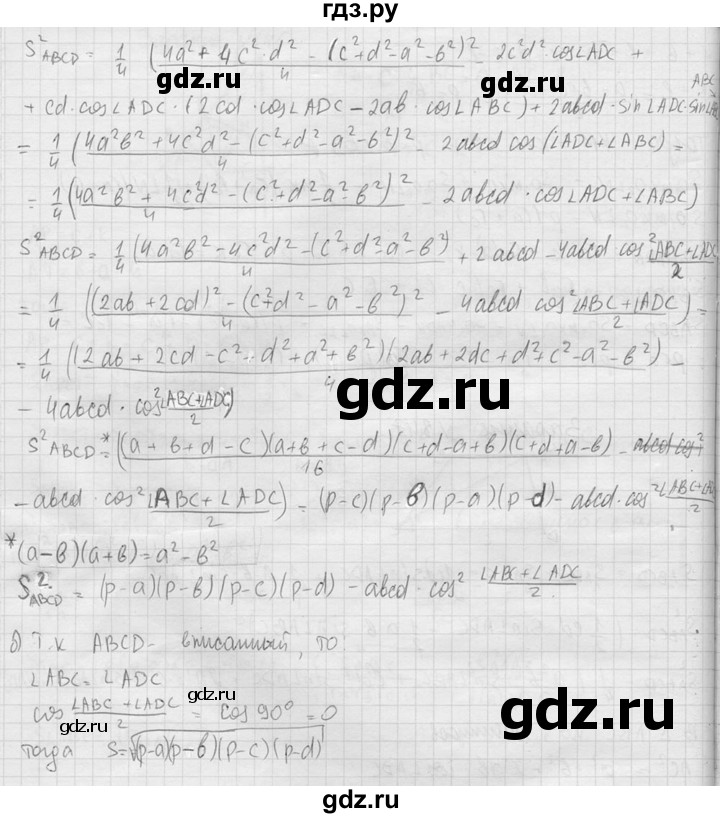 гдз.ру
S²ABCD = 1/4 ((4a² + 4c²·d² - (c²+d²-a²-b²)²)/4 - 2c²d²·cos∠ADC +
+ cd·cos∠ADC·(2cd·cos∠ADC - 2ab·cos∠ABC) + 2abcd·sin∠ADC·sin∠ABC
= 1/4 ((4a²b² + 4c²d² - (c²+d²-a²-b²)²)/4 - 2abcd cos(∠ADC+∠ABC) =
= 1/4 ((4a²b² + 4c²d² - (c²+d²-a²-b²)²)/4 - 2abcd·cos∠ADC+∠ABC)
S²ABCD = 1/4 ((4a²b² - 4c²d² - (c²+d²-a²-b²)/4 + 2abcd - 4abcd cos² (∠ABC+∠ADC)/2
= 1/4 (((2ab+2cd)² - (c²+d²-a²-b²)²)/4 - 4abcd cos² (∠ABC+∠ADC)/2) =
= 1/4 ((2ab + 2cd - c² + d² + a² + b²)(2ab + 2dc + d² + c² - a² - b²)/4 -
- 4abcd·cos² (∠ABC+∠ADC)/2)
S²ABCD =* ((a+b+d-c)(a+b+c-d)(c+d-a+b)(c+d+a-b)/16 - abcd cos²
- abcd·cos² (∠ABC+∠ADC)/2) = (p-c)(p-b)(p-a)(p-d) - abcd·cos² (∠ABC+∠A)/2
*(a-b)(a+b) = a² - b²
S²ABCD = (p-a)(p-b)(p-c)(p-d) - abcd·cos² (∠ABC+∠ADC)/2.
б) Т.к ABCD - вписанный, то:
∠ABC = ∠ADC
cos (∠ABC+∠ADC)/2 = cos 90° = 0
тогда S = √(p-a)(p-b)(p-c)(p-d)
gdz.ru
gdz.ru
gdz.ru
gdz.ru
gdz.ru
gdz.ru
gdz.ru
gdz.ru
gdz.ru